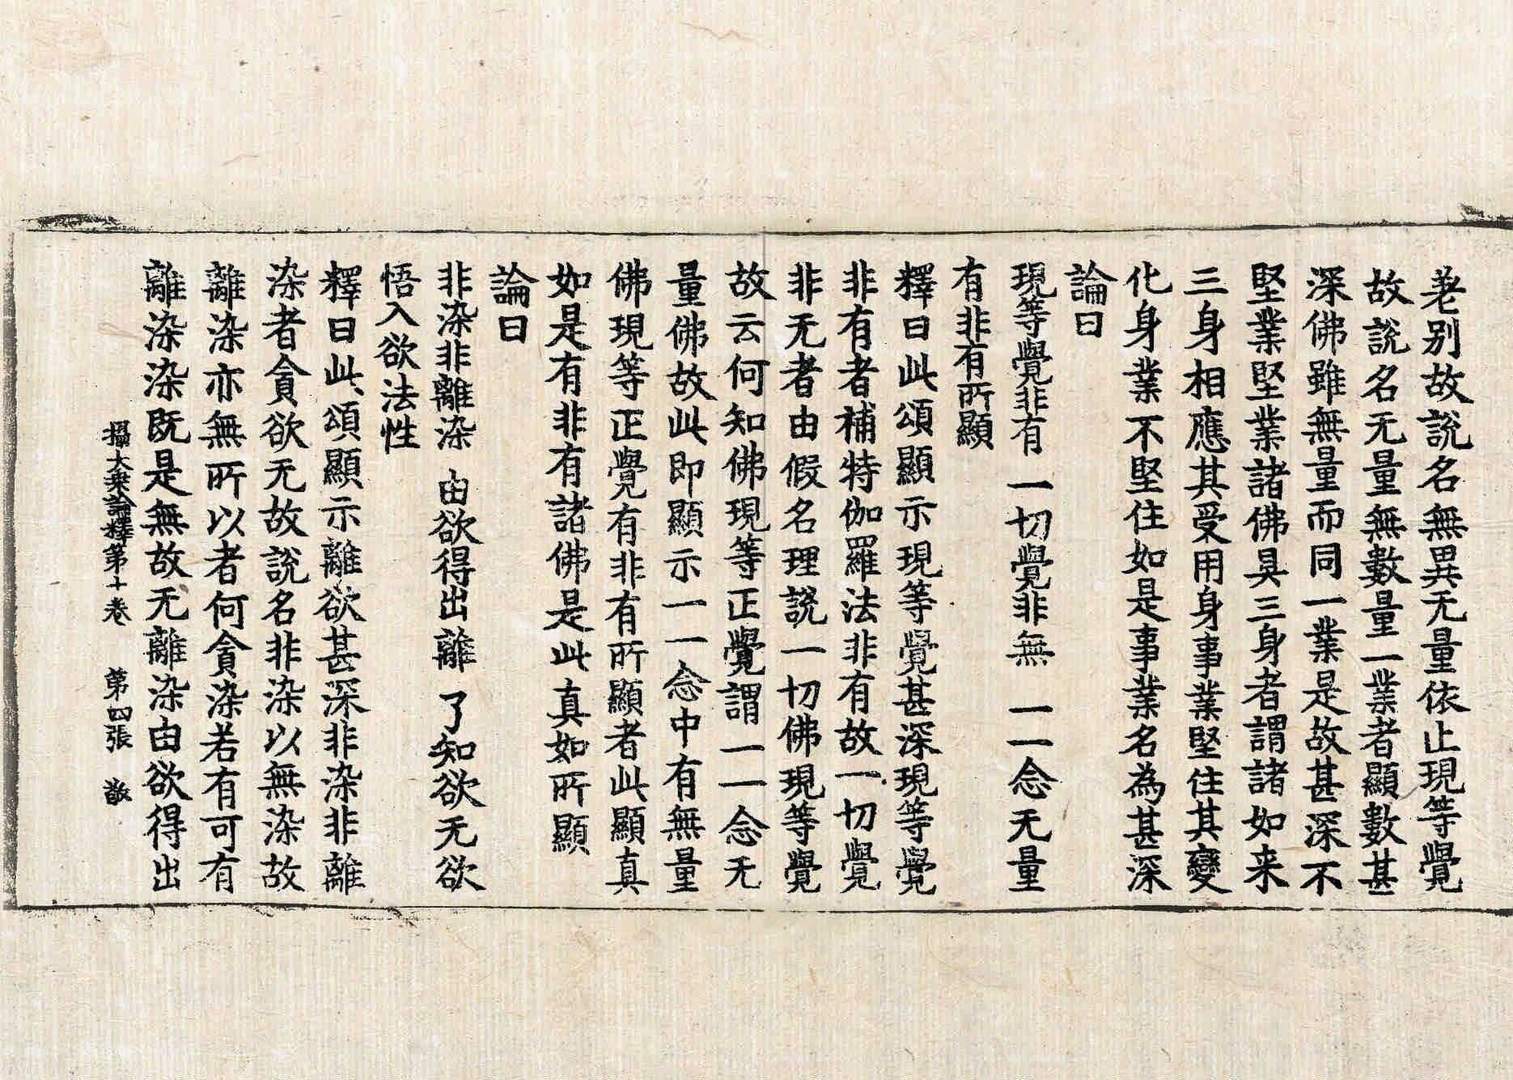 差别故說名無異无量依止現等覺
故說名无量無數量一業者顯數甚
深佛雖無量而同一業是故甚深不
堅業堅業諸佛具三身者謂諸如来
三身相應其受用身事業堅住其變
化身業不堅住如是事業名為甚深
論曰
現等覺非有 一切覺非無 一一念无量
有非有所顯
釋曰此頌顯示現等覺甚深現等覺
非有者補特伽羅法非有故一切覺
非无者由假名理說一切佛現等覺
故云何知佛現等正覺謂一一念无
量佛故此即顯示一一念中有無量
佛現等正覺有非有所顯者此顯真
如是有非有諸佛是此真如所顯
論曰
非染非離染 由欲得出離 了知欲无欲
悟入欲法性
釋曰此頌顯示離欲甚深非染非離
染者貪欲无故說名非染以無染故
離染亦無所以者何貪染若有可有
離染染既是無故无離染由欲得出
攝大乘論釋第十卷 第四張 敬